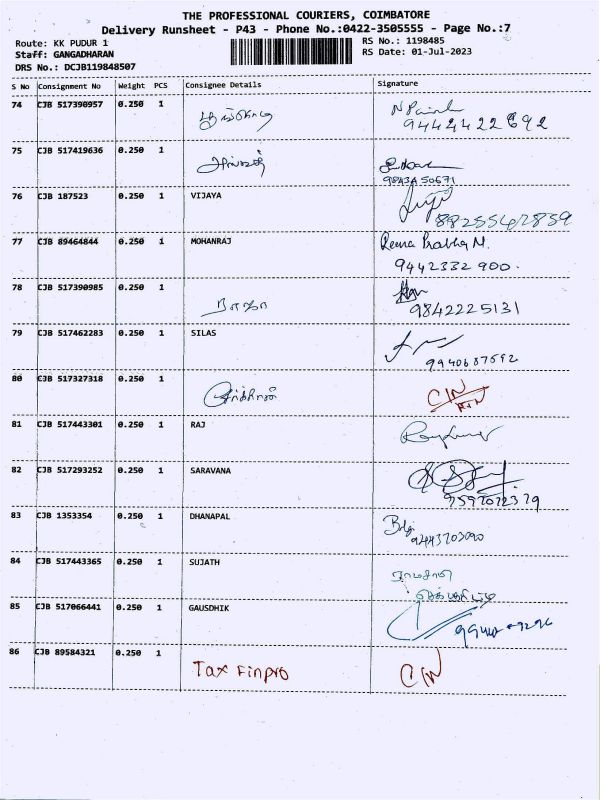 THE PROFESSIONAL COURIERS, COIMBATORE
Delivery Runsheet - P43 - Phone No.:0422-3505555 - Page No.:7
Route: KK PUDUR 1 RS No.: 1198485
Staff: GANGADHARAN RS Date: 01-Jul-2023
DRS No.: DCJB119848507
S No Consignment No Weight PCS Consignee Details Signature
74 CJB 517390957 0.250 1
9444422692
75 CJB 517419636 0.250 1
9843450671
76 CJB 187523 0.250 1 VIJAYA
8825542859
77 CJB 89464844 0.250 1 MOHANRAJ Rema Prabha M.
9442332900.
78 CJB 517390985 0.250 1 நாகா
9842225131
79 CJB 517462283 0.250 1 SILAS
9940687592
80 CJB 517327318 0.250 1 C/N
81 CJB 517443301 0.250 1 RAJ
82 CJB 517293252 0.250 1 SARAVANA
9597072379
83 CJB 1353354 0.250 1 DHANAPAL
9443703090
84 CJB 517443365 0.250 1 SUJATH ராமசாமி
85 CJB 517066441 0.250 1 GAUSDHIK
86 CJB 89584321 0.250 1 Tax Finpro C/N